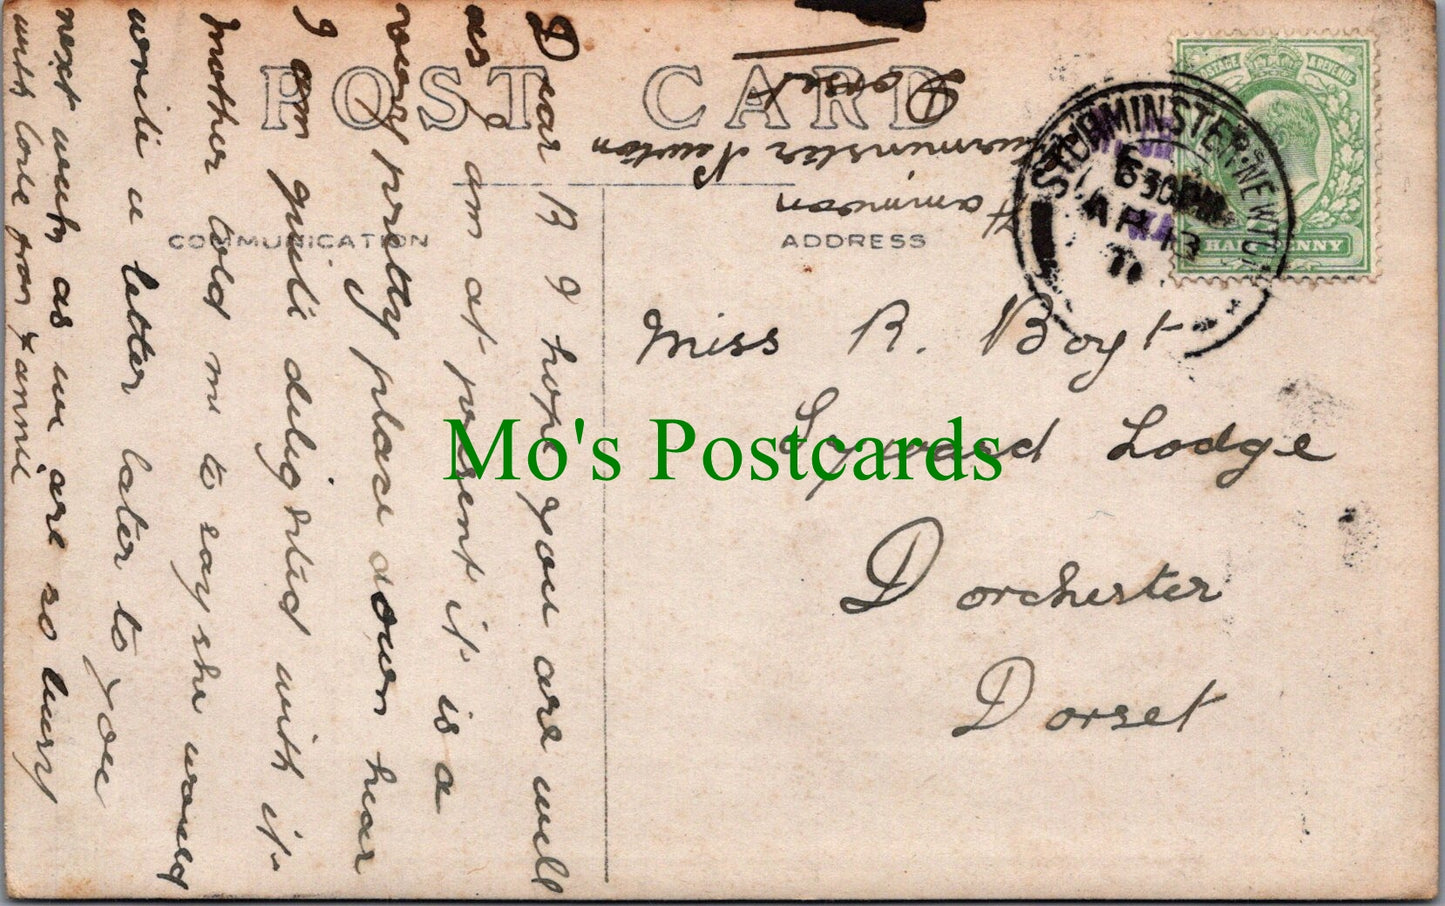 POST CARD
COMMUNICATION
ADDRESS
Hammoon
Sturminster Newton
Dorset
POSTAGE & REVENUE
HALFPENNY
STURMINSTER-NEWTON
6 30 PM
AP 13
Miss R. Boyt
Syward Lodge
Dorchester
Dorset
Dear R I hope you are well
as I am at present it is a
very pretty place down hear
I am quite delighted with it
Mother told me to say she would
write a letter later to you
next week as we are so busy
with love from Fannie
Mo's Postcards